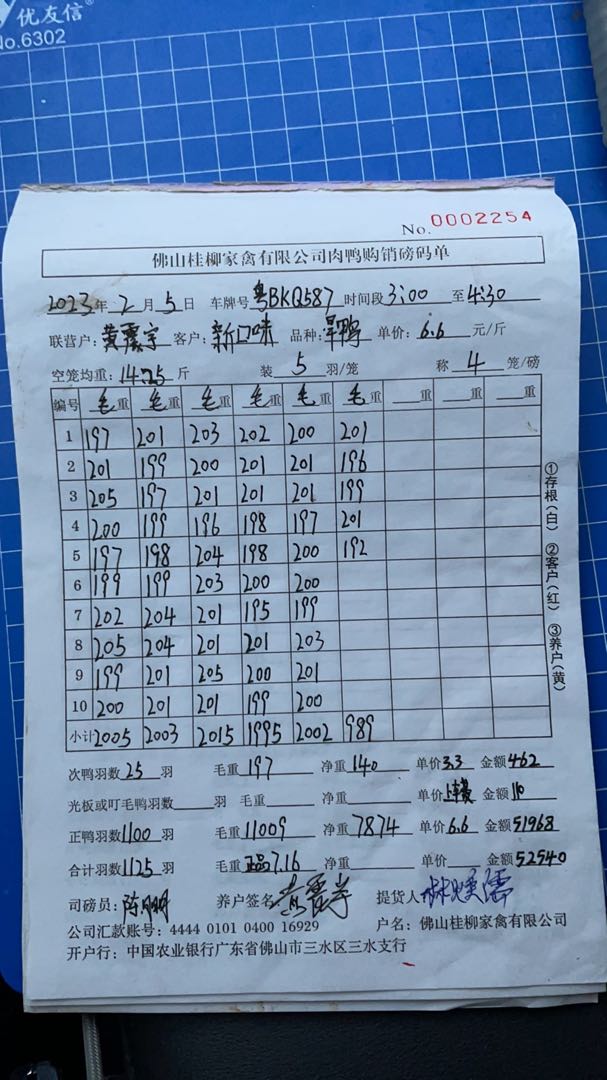 优友信
No.6302
No. 0002254
佛山桂柳家禽有限公司肉鸭购销磅码单
2023年 2 月 5 日 车牌号 粤BKQ587 时间段 3:00 至 4:30
联营户: 黄震宇 客户: 新口味 品种: 旱鸭 单价: 6.6 元/斤
空笼均重: 14.25 斤 装 5 羽/笼 称 4 笼/磅
编号 毛重 毛重 毛重 毛重 毛重 毛重 重 重 重
1 197 201 203 202 200 201
2 201 199 200 201 201 196
3 205 197 201 201 201 199
4 200 199 196 198 197 201
5 197 198 204 198 200 192
6 199 199 203 200 200
7 202 204 201 195 199
8 205 204 201 201 203
9 199 201 205 200 201
10 200 201 201 199 200
小计 2005 2003 2015 1995 2002 989
①存根(白) ②客户(红) ③养户(黄)
次鸭羽数 25 羽 毛重 197 净重 140 单价 3.3 金额 462
光板或叮毛鸭羽数 羽 毛重 净重 单价 金额 110
正鸭羽数 1100 羽 毛重 11009 净重 7874 单价 6.6 金额 51968
合计羽数 1125 羽 毛重 正品7.16 净重 单价 金额 52540
司磅员: 陈明 养户签名 黄震宇 提货人
公司汇款账号: 4444 0101 0400 16929 户名: 佛山桂柳家禽有限公司
开户行: 中国农业银行广东省佛山市三水区三水支行